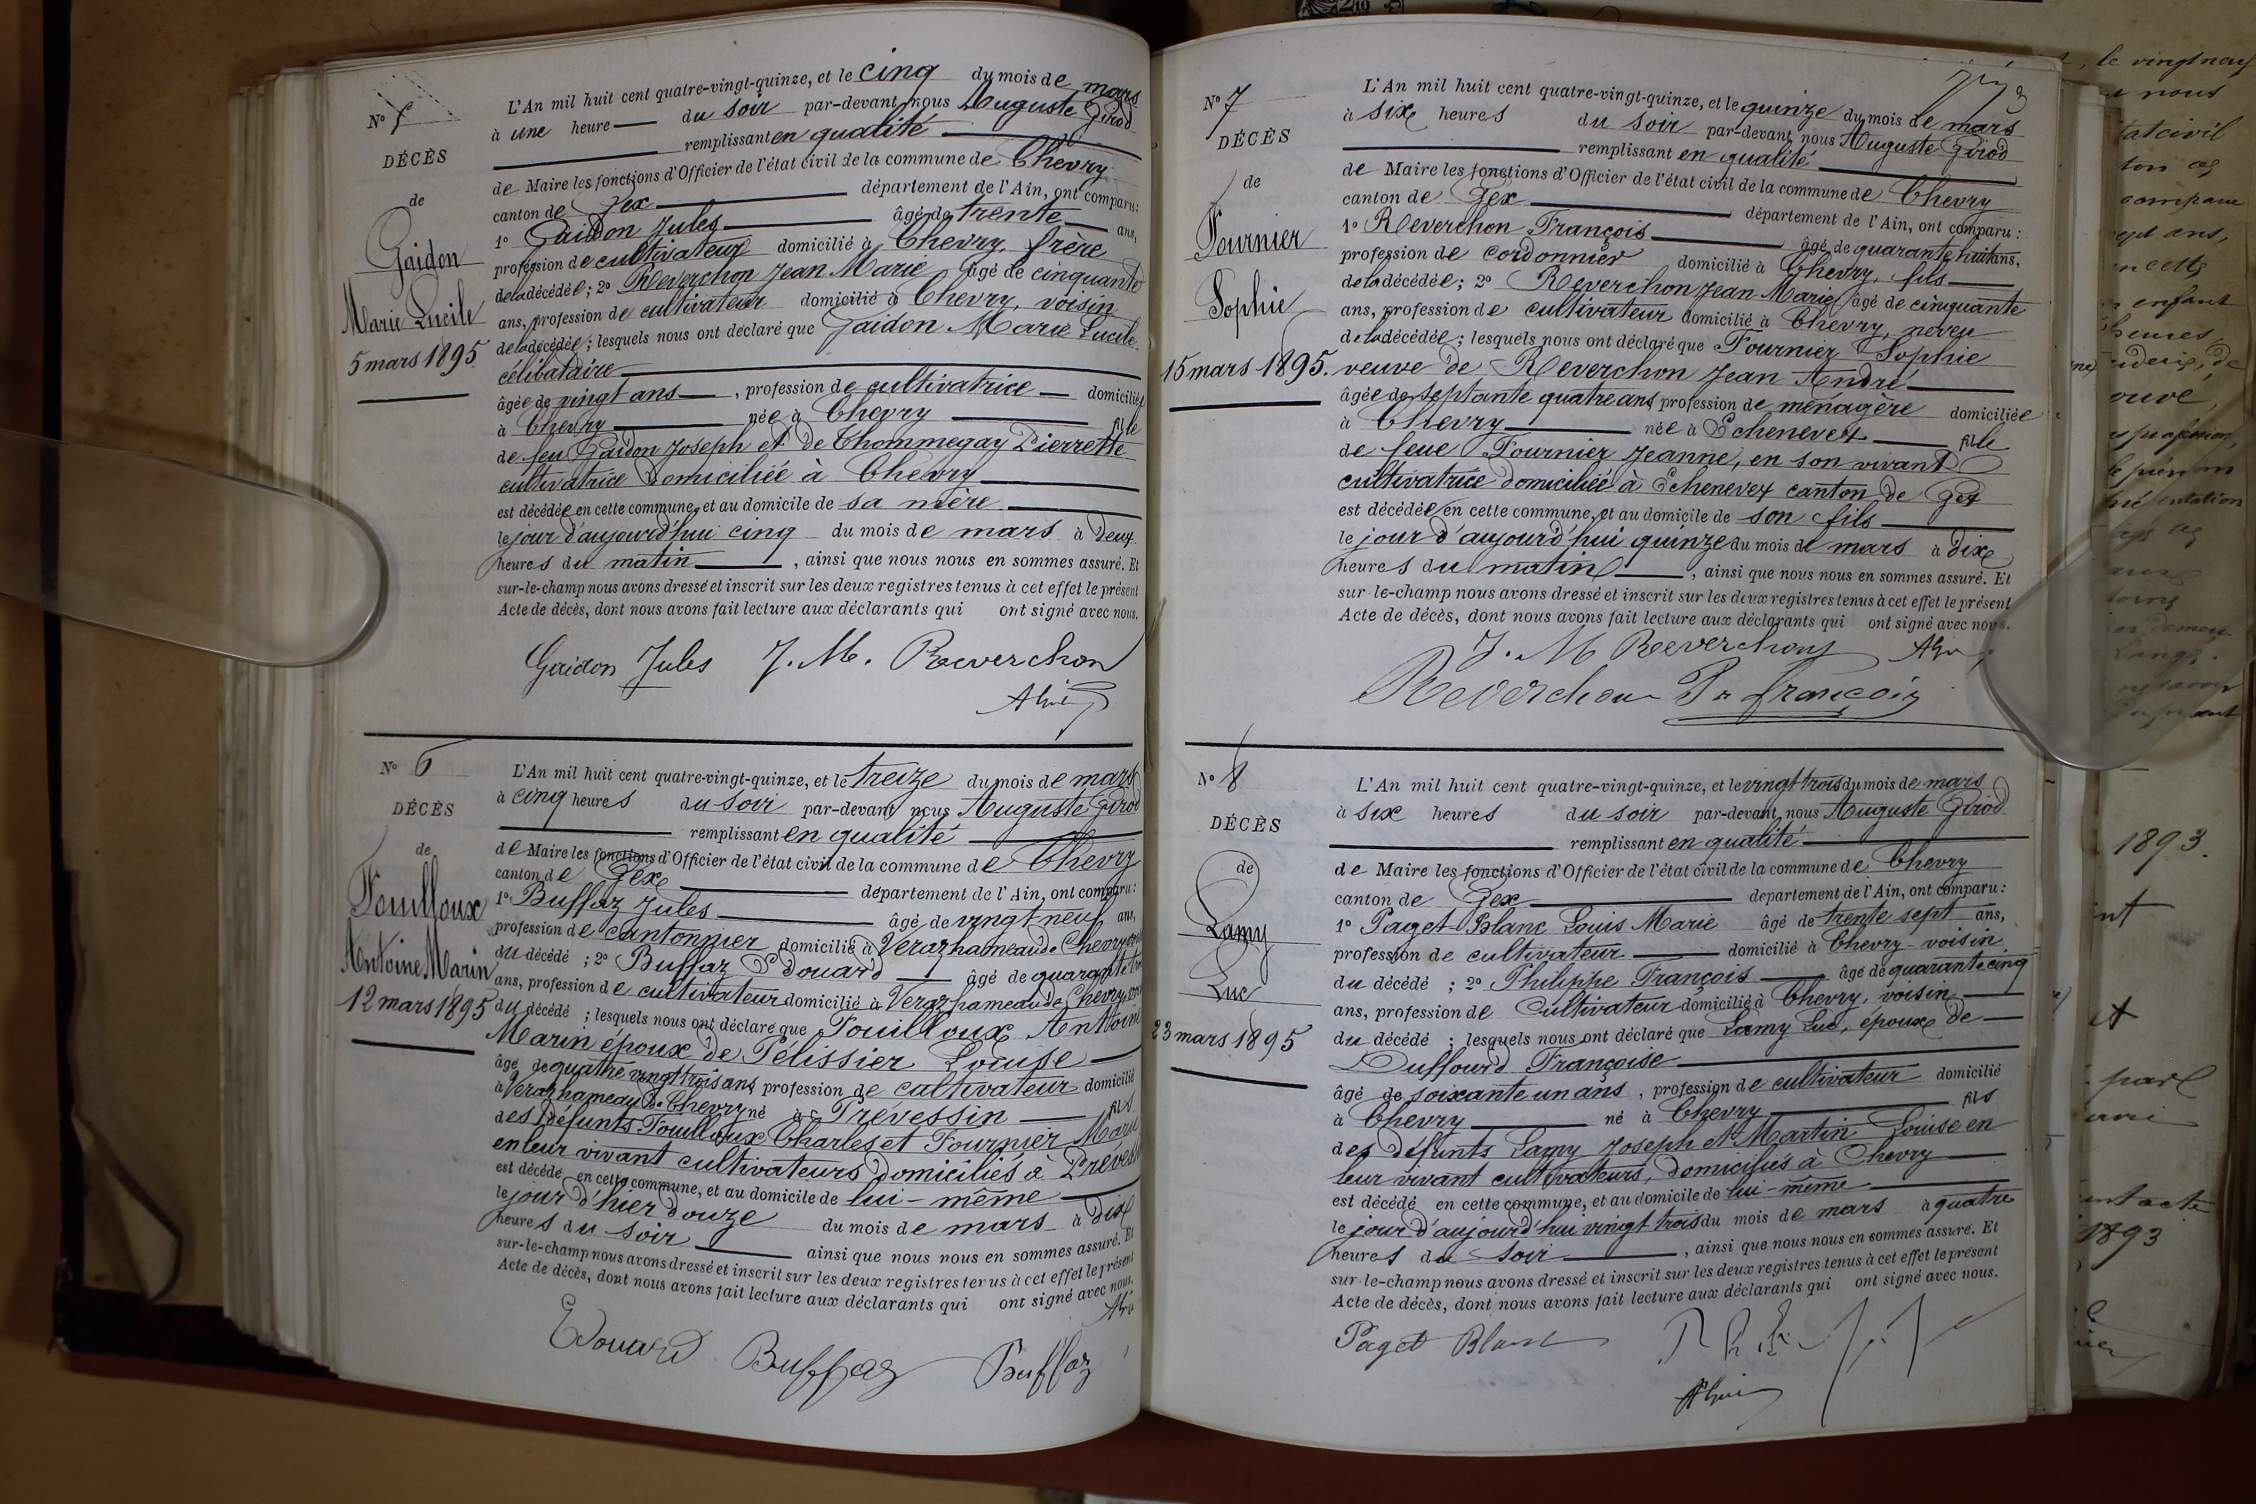 N° 5
DÉCÈS
de
Gaidon
Marie Lucile
5 mars 1895
L'An mil huit cent quatre-vingt-quinze, et le cinq du mois de mars
à une heure du soir par-devant nous Auguste Girod
remplissant en qualité
de Maire les fonctions d'Officier de l'état civil de la commune de Chevry
canton de Gex département de l'Ain, ont comparu :
1° Gaidon Jules âgé de trente ans,
profession de cultivateur domicilié à Chevry, frère
de la décédée ; 2° Reverchon Jean Marie âgé de cinquante
ans, profession de cultivateur domicilié à Chevry, voisin
de la décédée ; lesquels nous ont déclaré que Gaidon Marie Lucile
célibataire
âgée de vingt ans, profession de cultivatrice domiciliée
à Chevry née à Chevry fille
de feu Gaidon Joseph et de Thommegay Pierrette
cultivatrice domiciliée à Chevry
est décédée en cette commune, et au domicile de sa mère
le jour d'aujourd'hui cinq du mois de mars à deux
heures du matin, ainsi que nous nous en sommes assuré. Et
sur-le-champ nous avons dressé et inscrit sur les deux registres tenus à cet effet le présent
Acte de décès, dont nous avons fait lecture aux déclarants qui ont signé avec nous.
Gaidon Jules J. M. Reverchon
N° 6
DÉCÈS
de
Fouilloux
Antoine Marin
12 mars 1895
L'An mil huit cent quatre-vingt-quinze, et le treize du mois de mars
à cinq heures du soir par-devant nous Auguste Girod
remplissant en qualité
de Maire les fonctions d'Officier de l'état civil de la commune de Chevry
canton de Gex département de l'Ain, ont comparu :
1° Buffaz Jules âgé de vingt neuf ans,
profession de cantonnier domicilié à Veraz hameau de Chevry
du décédé ; 2° Buffaz Edouard âgé de quarante
ans, profession de cultivateur domicilié à Veraz hameau de Chevry
du décédé ; lesquels nous ont déclaré que Fouilloux Antoine
Marin époux de Pélissier Louise
âgé de quatre vingt trois ans profession de cultivateur domicilié
à Veraz hameau de Chevry né à Prevessin fils
des défunts Fouilloux Charles et Fournier Marie
en leur vivant cultivateurs domiciliés à
est décédé en cette commune, et au domicile de lui-même
le jour d'hier douze du mois de mars à dix
heures du soir ainsi que nous nous en sommes assuré. Et
sur-le-champ nous avons dressé et inscrit sur les deux registres tenus à cet effet le présent
Acte de décès, dont nous avons fait lecture aux déclarants qui ont signé avec nous.
Edouard Buffaz Buffaz
N° 7
DÉCÈS
de
Fournier
Sophie
15 mars 1895.
3
L'An mil huit cent quatre-vingt-quinze, et le quinze du mois de mars
à six heures du soir par-devant nous Auguste Girod
remplissant en qualité
de Maire les fonctions d'Officier de l'état civil de la commune de Chevry
canton de Gex département de l'Ain, ont comparu :
1° Reverchon François âgé de quarante huit ans,
profession de cordonnier domicilié à Chevry, fils
de la décédée ; 2° Reverchon Jean Marie, âgé de cinquante
ans, profession de cultivateur domicilié à Chevry, neveu
de la décédée ; lesquels nous ont déclaré que Fournier Sophie
veuve de Reverchon Jean André
âgée de septante quatre ans, profession de ménagère domiciliée
à Chevry née à Echenevex fille
de feue Fournier Jeanne, en son vivant
cultivatrice domiciliée à Echenevex canton de Gex
est décédée en cette commune, et au domicile de son fils
le jour d'aujourd'hui quinze du mois de mars à dix
heures du matin, ainsi que nous nous en sommes assuré. Et
sur-le-champ nous avons dressé et inscrit sur les deux registres tenus à cet effet le présent
Acte de décès, dont nous avons fait lecture aux déclarants qui ont signé avec nous.
J. M Reverchon
Reverchon François
N° 8
DÉCÈS
de
Lamy
Luc
23 mars 1895
L'An mil huit cent quatre-vingt-quinze, et le vingt trois du mois de mars
à six heures du soir par-devant nous Auguste Girod
remplissant en qualité
de Maire les fonctions d'Officier de l'état civil de la commune de Chevry
canton de Gex département de l'Ain, ont comparu :
1° Paget-Blanc Louis Marie âgé de trente sept ans,
profession de cultivateur domicilié à Chevry - voisin
du décédé ; 2° Philippe François âgé de quarante cinq
ans, profession de cultivateur domicilié à Chevry, voisin
du décédé ; lesquels nous ont déclaré que Lamy Luc, époux de
Duffourd Françoise
âgé de soixante un ans, profession de cultivateur domicilié
à Chevry né à Chevry fils
des défunts Lamy Joseph et Martin Louise en
leur vivant cultivateurs, domiciliés à Chevry
est décédé en cette commune, et au domicile de lui-même
le jour d'aujourd'hui vingt trois du mois de mars à quatre
heures du soir, ainsi que nous nous en sommes assuré. Et
sur-le-champ nous avons dressé et inscrit sur les deux registres tenus à cet effet le présent
Acte de décès, dont nous avons fait lecture aux déclarants qui ont signé avec nous.
Paget Blanc
le vingt neuf
nous
1893.
1893